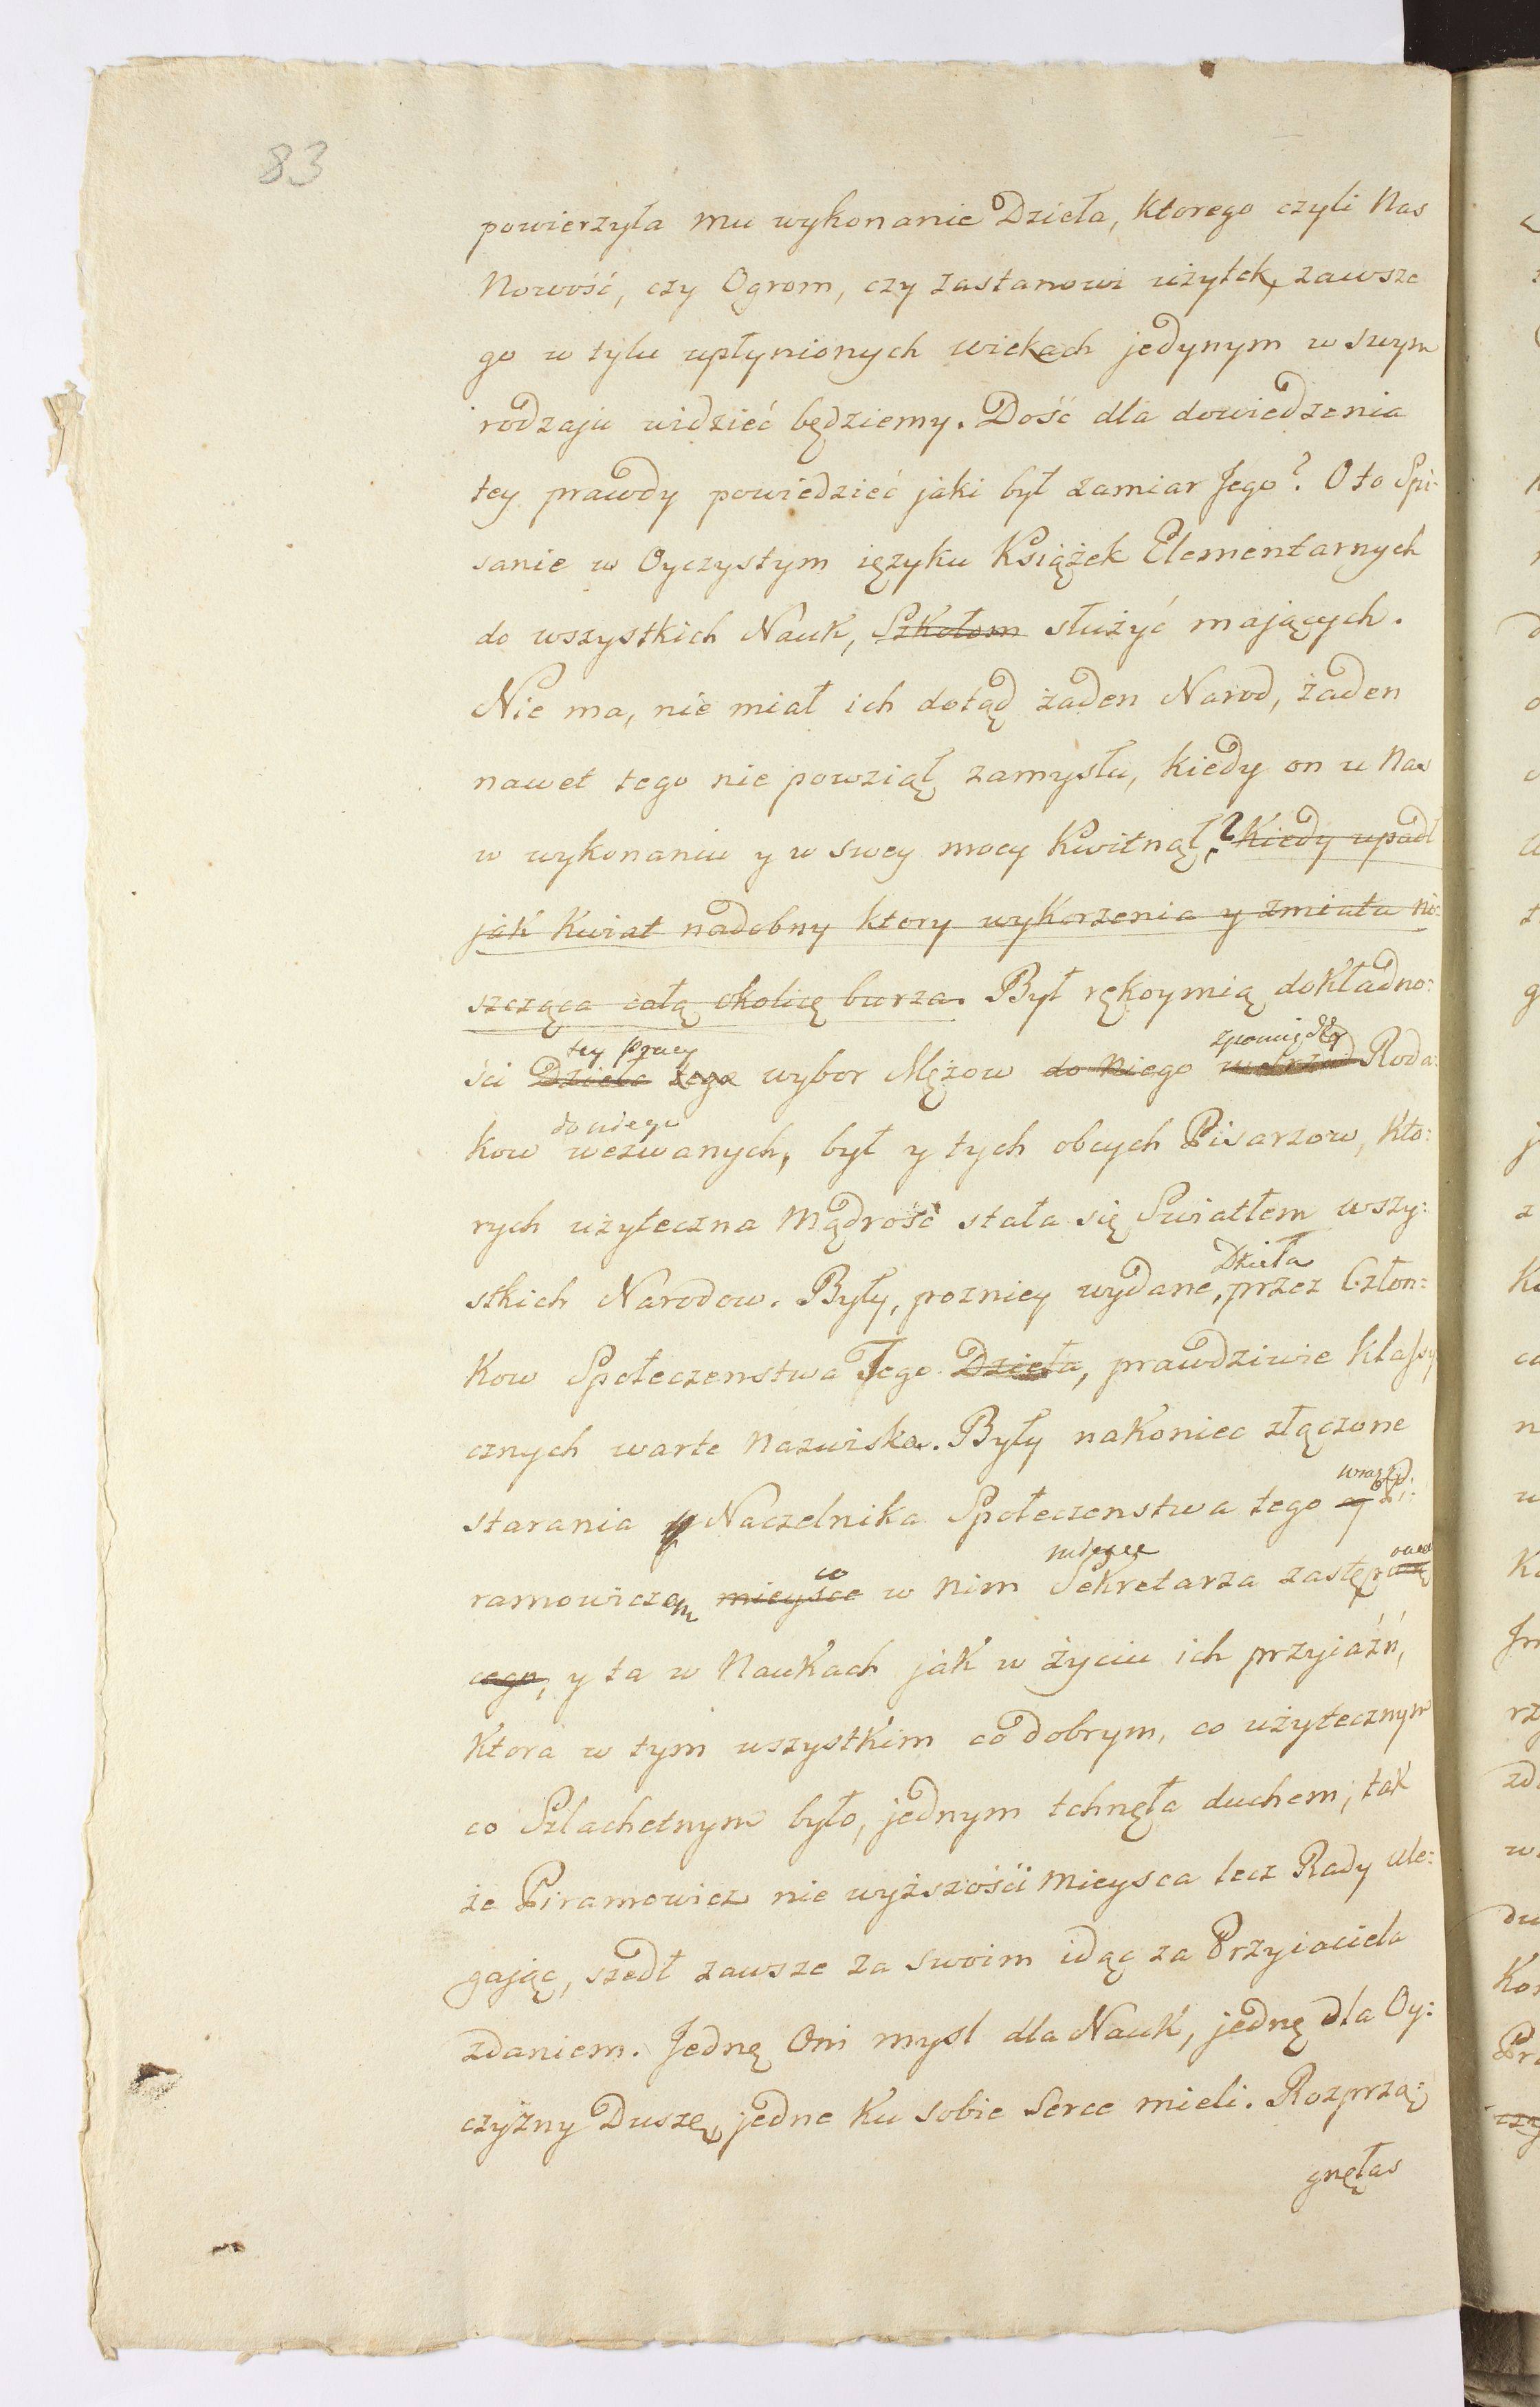 83
powierzyła mu wykonanie Dzieła, Ktorego czyli Nas
Nowość, czy Ogrom, czy zastanowi użytek, zawsze
go w tylu upłynionych wiekach jedynym w swym
rodzaju widzieć będziemy. Dość dla dowiedzenia
tey prawdy powiedzieć jaki był zamiar Jego? Oto Spi-
sanie w Oyczystym ięzyku Książek Elementarnych
do wszystkich Nauk, Szkołom służyć mających.
Nie ma, nie miał ich dotąd żaden Narod, żaden
nawet tego nie powziął zamysłu, kiedy on u Nas
w wykonaniu y w swey mocy Kwitnął? Kiedy upadł
jak Kwiat nadobny ktory wykorzenia y zmiata ni:
szcząca całą okolicę burza. Był rękoymią dokładno:
tey pracy zpomiędzy
ści Dzieła tego wybor Mężow do Niego Roda:
do niego
kow wezwanych, był y tych obcych Pisarzow, Kto:
rych użyteczna Mądrość stała się Swiatłem wszy:
Dzieła
stkich Narodow. Były, pozniey wydane, przez Człon:
Kow Społeczenstwa Tego Dzieła, prawdziwie klassy
cznych warte Nazwiska. Były nakoniec złączone
wraz z
starania y Naczelnika Społeczenstwa tego y Pi:
co mieysce
ramowiczem mieysce w nim Sekretarza zastęp
cego, y ta w Naukach jak w życiu ich przyiaźń,
Ktora w tym wszystkim co dobrym, co użytecznym
co Szlachetnym było, jednym tchnęła duchem; tak
że Piramowicz nie wyższości Mieysca lecz Rady ule:
gając, szedł zawsze za swoim idąc za Przyiaciela
zdaniem. Jednę Oni mysl dla Nauk, jednę dla Oy:
czyzny Duszę, jedne Ku sobie Serce mieli. Rozprzą:
gnęłas